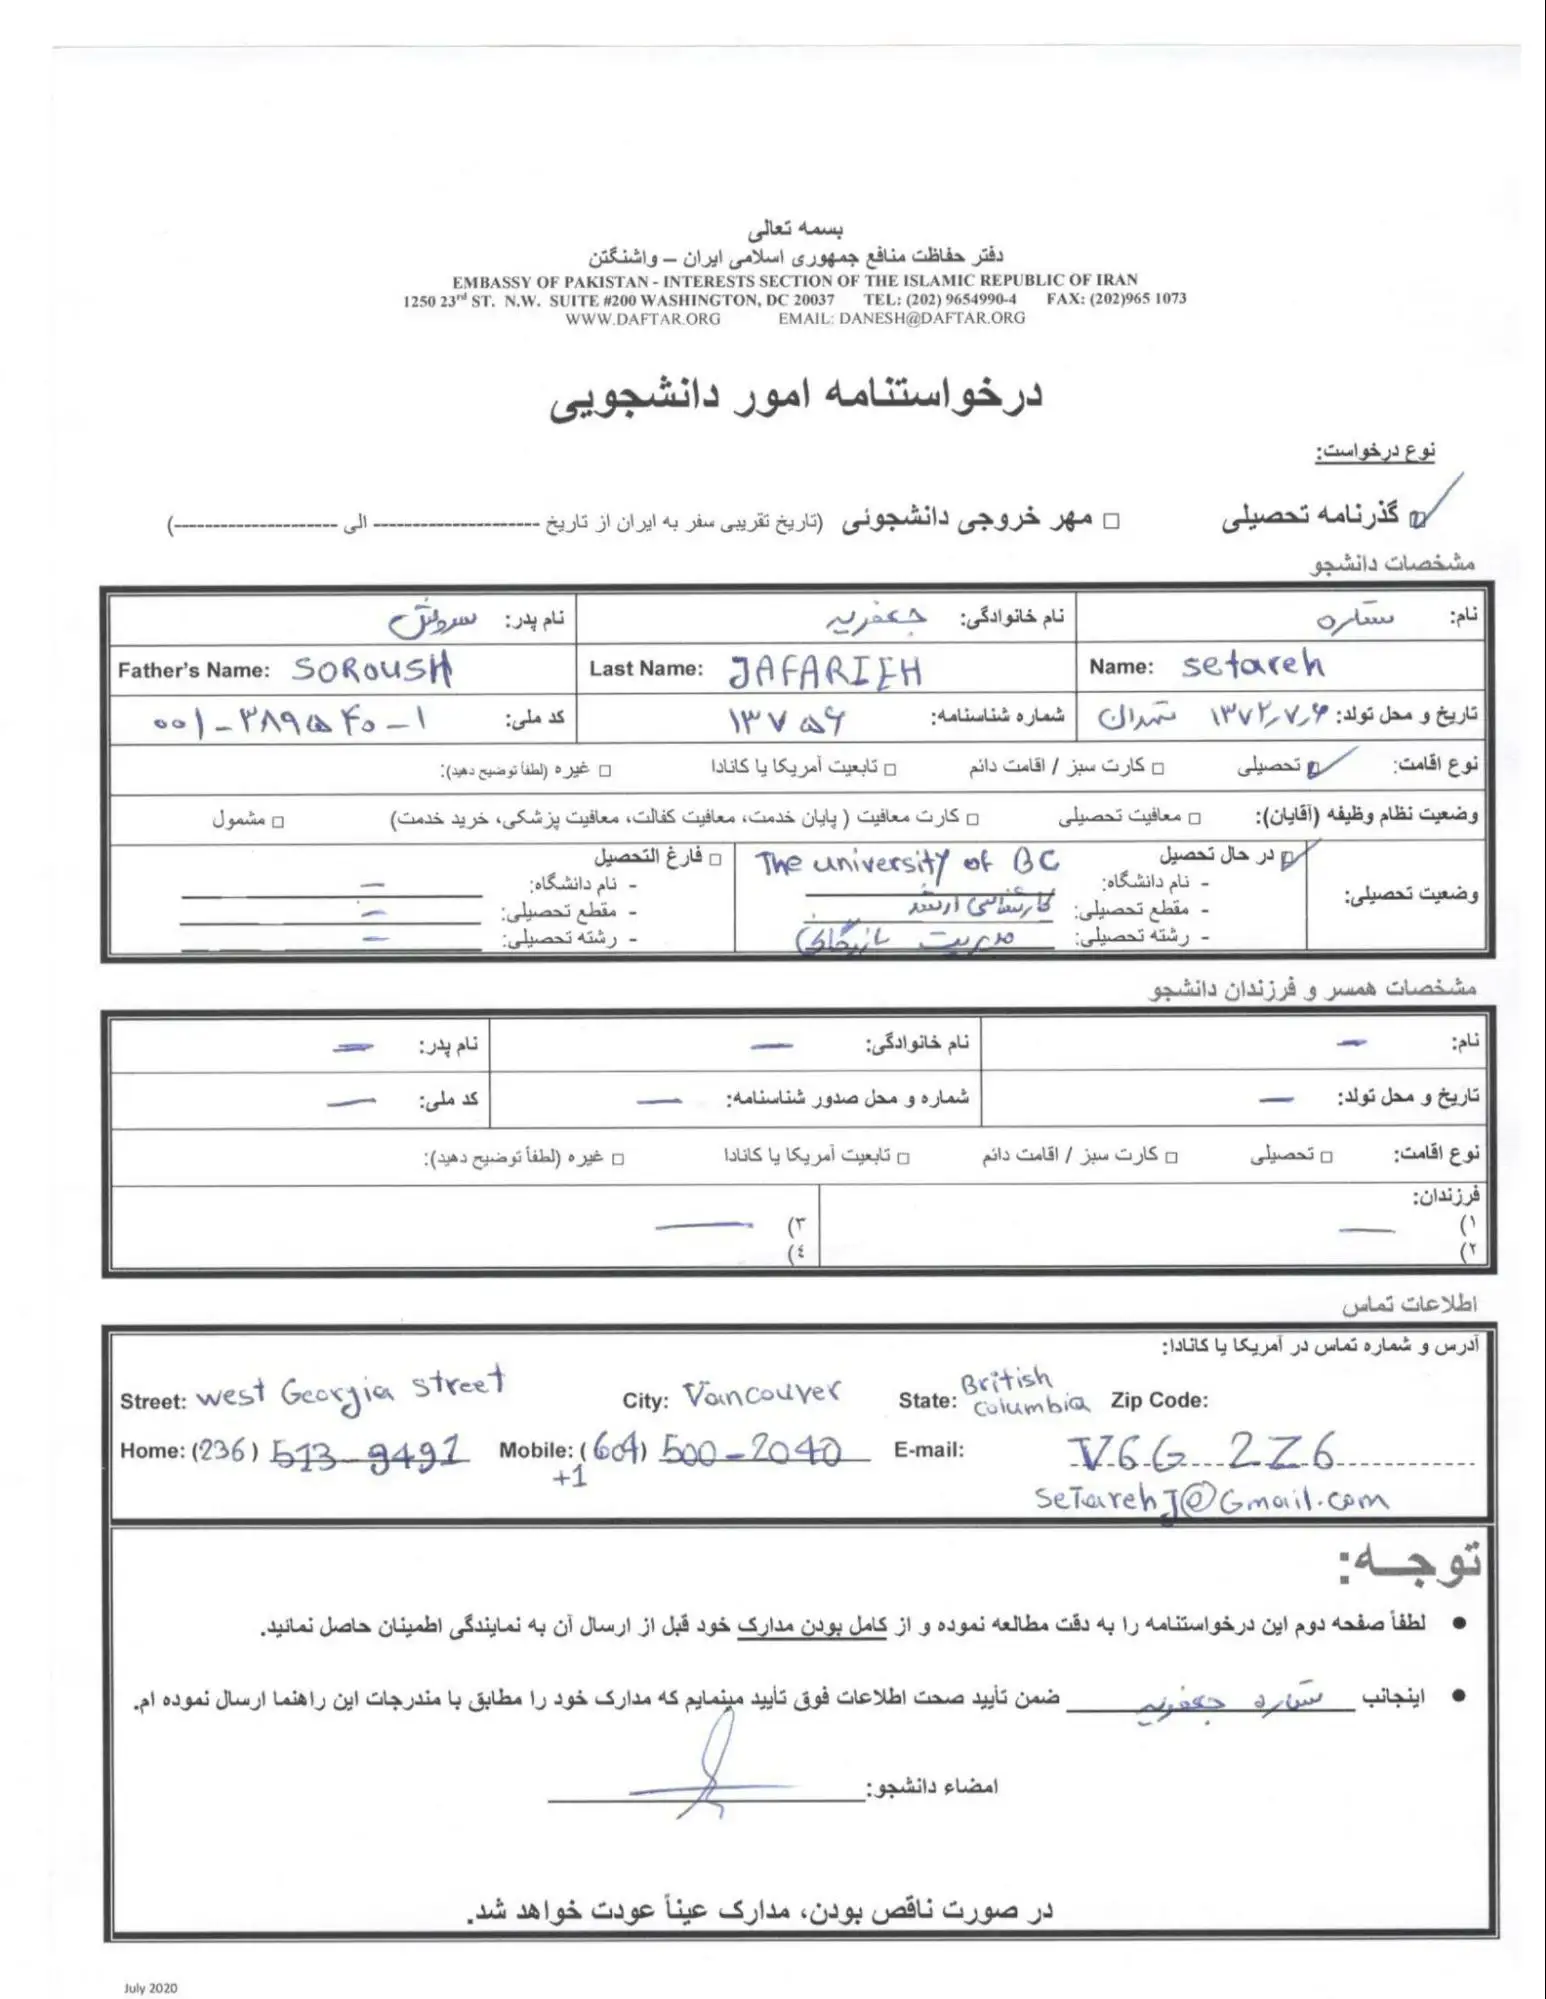 بسمه تعالی
دفتر حفاظت منافع جمهوری اسلامی ایران – واشنگتن
EMBASSY OF PAKISTAN - INTERESTS SECTION OF THE ISLAMIC REPUBLIC OF IRAN
1250 23rd ST. N.W. SUITE #200 WASHINGTON, DC 20037 TEL: (202) 9654990-4 FAX: (202)965 1073
WWW.DAFTAR.ORG EMAIL: DANESH@DAFTAR.ORG
درخواستنامه امور دانشجویی
نوع درخواست:
گذرنامه تحصیلی □ مهر خروجی دانشجوئی (تاریخ تقریبی سفر به ایران از تاریخ --------------------- الی ---------------------)
مشخصات دانشجو
نام: ستاره نام خانوادگی: جعفریه نام پدر: سروش
Father's Name: SOROUSH Last Name: JAFARIEH Name: setareh
تاریخ و محل تولد: ۱۳۷۲٫۷٫۶ تهران شماره شناسنامه: ۱۳۷۵۶ کد ملی: ۰۰۱-۳۸۹۵۴۰-۱
نوع اقامت: تحصیلی □ کارت سبز / اقامت دائم □ تابعیت آمریکا یا کانادا □ غیره (لطفاً توضیح دهید):
وضعیت نظام وظیفه (آقایان): □ معافیت تحصیلی □ کارت معافیت ( پایان خدمت، معافیت کفالت، معافیت پزشکی، خرید خدمت) □ مشمول
وضعیت تحصیلی: در حال تحصیل The university of BC □ فارغ التحصیل
- نام دانشگاه: - نام دانشگاه: —
- مقطع تحصیلی: کارشناسی ارشد - مقطع تحصیلی: —
- رشته تحصیلی: مدیریت بازرگانی - رشته تحصیلی: —
مشخصات همسر و فرزندان دانشجو
نام: — نام خانوادگی: — نام پدر: —
تاریخ و محل تولد: — شماره و محل صدور شناسنامه: — کد ملی: —
نوع اقامت: □ تحصیلی □ کارت سبز / اقامت دائم □ تابعیت آمریکا یا کانادا □ غیره (لطفاً توضیح دهید):
فرزندان:
۱) — ۳) —
۲) ٤)
اطلاعات تماس
آدرس و شماره تماس در آمریکا یا کانادا:
Street: west Georgia street City: Vancouver State: British columbia Zip Code:
Home: (236) 513-9491 Mobile: (604) 500-2040 E-mail: V6G 2Z6
+1 SeTarehJ@Gmail.com
توجــه:
● لطفاً صفحه دوم این درخواستنامه را به دقت مطالعه نموده و از کامل بودن مدارک خود قبل از ارسال آن به نمایندگی اطمینان حاصل نمائید.
● اینجانب ستاره جعفریه ضمن تأیید صحت اطلاعات فوق تأیید مینمایم که مدارک خود را مطابق با مندرجات این راهنما ارسال نموده ام.
امضاء دانشجو:
در صورت ناقص بودن، مدارک عیناً عودت خواهد شد.
July 2020